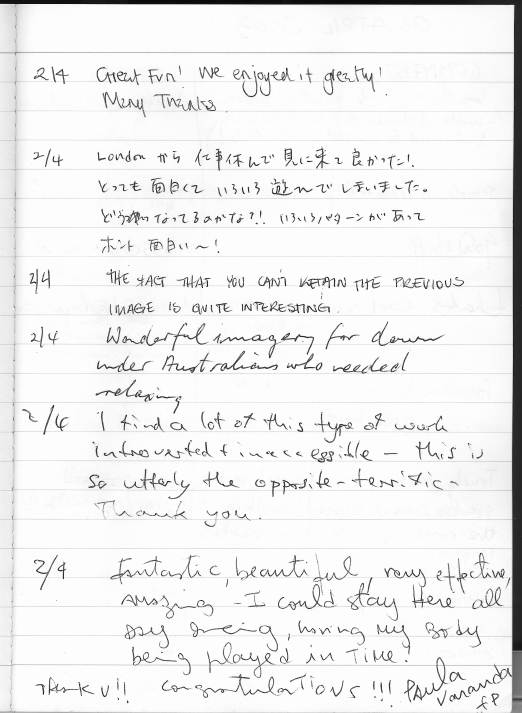 2/4 Great Fun! We enjoyed it greatly!
Many Thanks.
2/4 London から 仕事休んで 見に来て 良かった!
とっても 面白くて いろいろ 遊んで しまいました。
どう なってるのかな?! いろいろ パターンが あって
ホント 面白い〜!
2/4 THE FACT THAT YOU CAN'T RETAIN THE PREVIOUS
IMAGE IS QUITE INTERESTING.
2/4 Wonderful imagery for down
under Australians who needed
relaxing
2/4 I find a lot of this type of work
introverted + inaccessible – this is
so utterly the opposite – terrific –
Thank you.
2/4 Fantastic, beautiful, very effective,
amazing – I could stay Here all
Day , having My Body
being played in TIME!
THANK U!! Congratulations!!! PAULA
Varanda